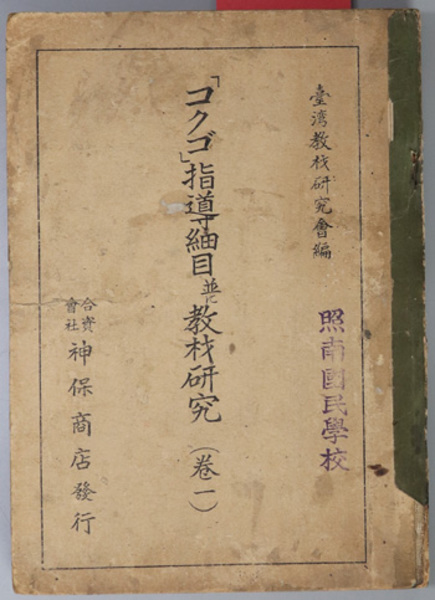 臺湾教材研究會編
照南國民學校
「コクゴ」指導細目並ニ教材研究（卷一）
合資會社神保商店發行